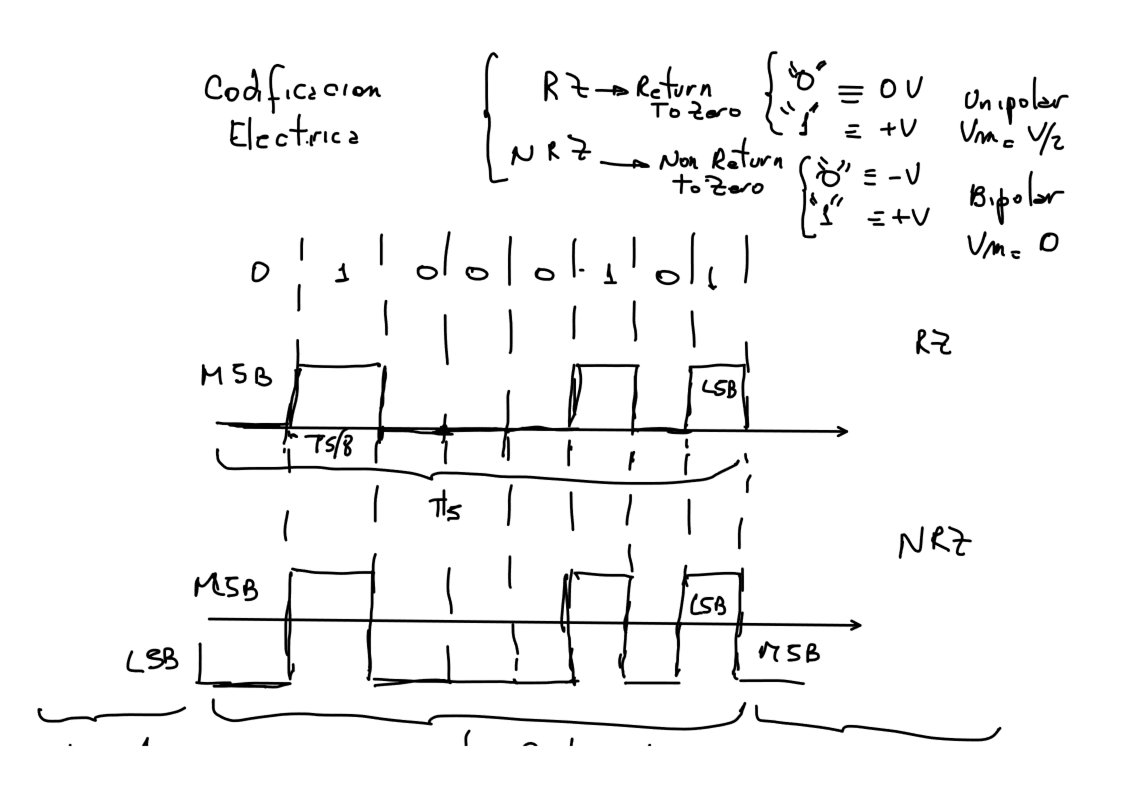 Codificacion
Electrica
RZ → Return To Zero { "0" ≡ 0V "1" ≡ +V Unipolar Vm = V/2
NRZ → Non Return to Zero { "0" ≡ -V "1" ≡ +V Bipolar Vm = 0
0 1 0 0 0 1 0 1
RZ
MSB LSB
Ts/8
Ts
NRZ
MSB LSB
LSB MSB